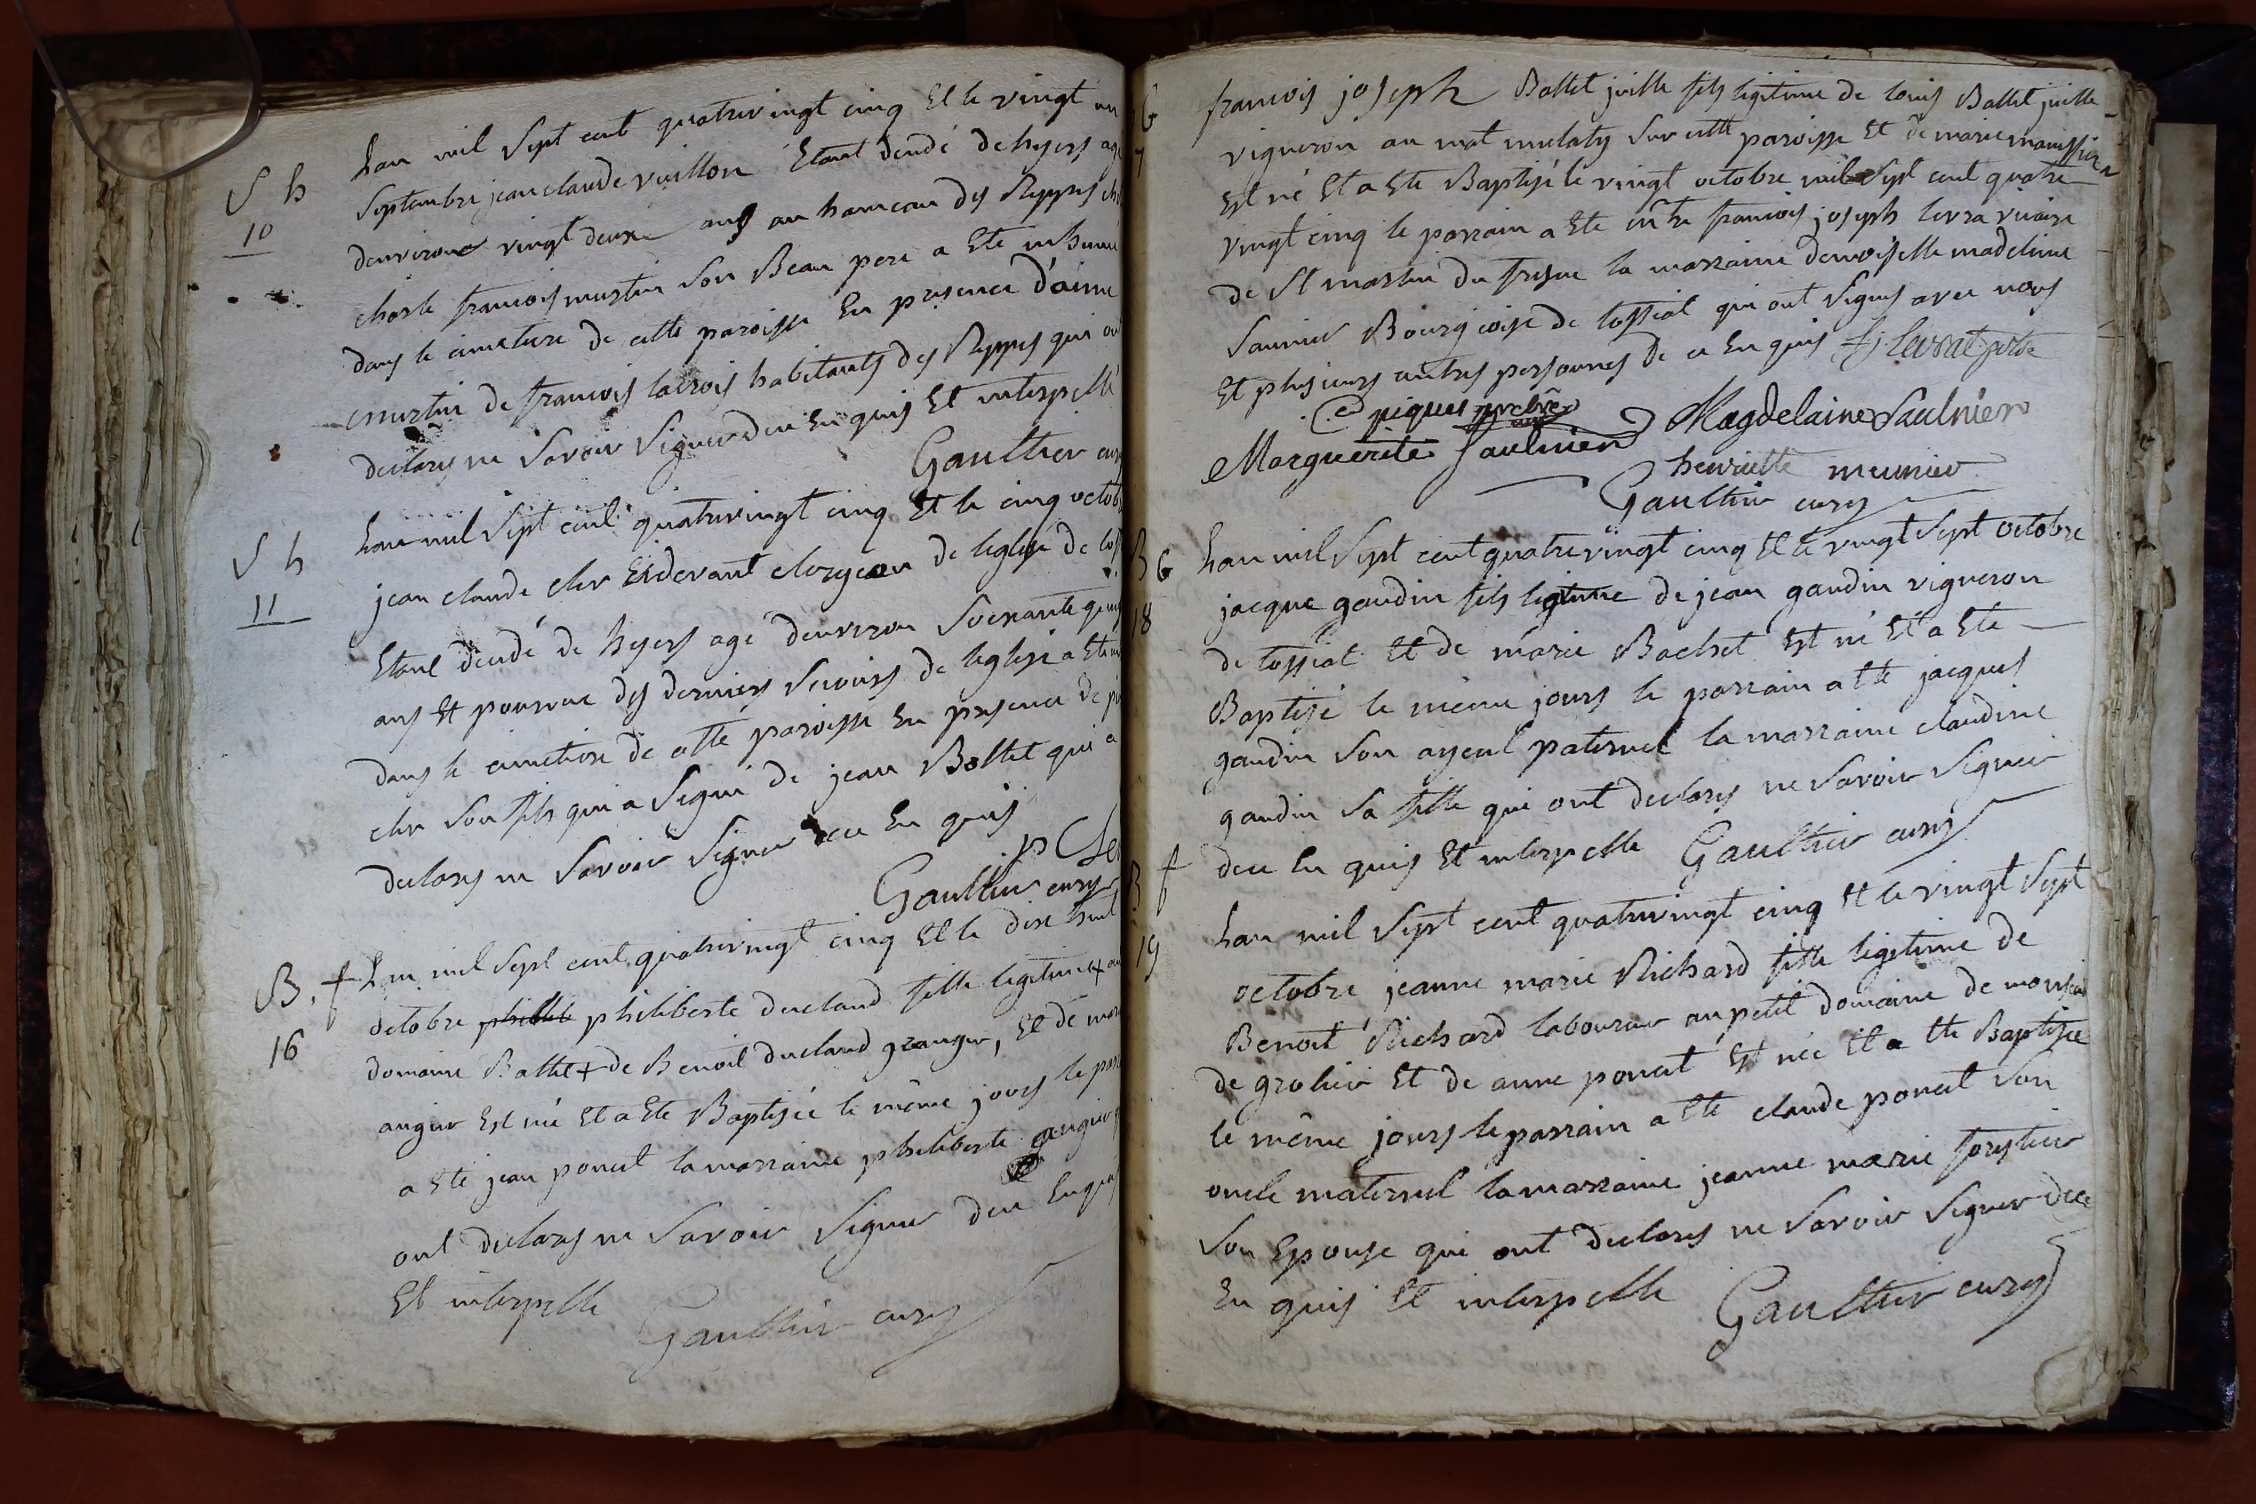 S h
10
Lan mil Sept cent quatrevingt cinq Et le vingt un
Septembre jean claude vuillon Etant decedé dehyers agé
denviron vingt deux ans au hameau des Reppes chez
charle francois martin son Beau pere a Ete inhumé
dans le cimetiere de cette paroisse En presence d'aimé
martin de francois lacrois habitants des Reppes qui ont
declarés ne Savoir Signer dece Enquis Et interpellé
Gaulthier curé
S h
11
Lan mil Sept cent quatrevingt cinq Et le cinq octobre
jean claude cler cidevant clergeon de leglise de toss
Etant decedé de hyers agé denviron Soixante quinze
ans Et pourvue des derniers Secours de leglise a Ete
dans le cimetiere de cette paroisse En presence de
cler Son fils qui a Signé de jean Bollet qui a
declarés ne Savoir Signer dece En quis
p Cler
Gaulthier curé
B. f
16
Lan mil Sept cent quatrevingt cinq Et le dix huit
octobre philiberte ducland fille legitime + au
domaine Battet + de Benoit ducland granger, Et de marie
augier Est née Et a Ete Baptisée le même jours le parrain
a Ete jean poncet la marraine philiberte augier
ont declarés ne Savoir Signer dece Enquis
Et interpelle
Gaulthier curé
G
7
francois joseph Bollet juille fils legitime de louis Bollet juille
vigneron au mat mulaty Sur cette paroisse Et de marie manissier
Est né Et a Ete Baptisé le vingt octobre mil Sept cent quatre
vingt cinq le parrain a Ete francois joseph levra vicaire
de St martin du fresne la marraine demoiselle madeleine
Saunier Bourgoise de tossiat qui ont Signés avec nous
Et plusieurs autres personnes de ce Enquis fj levrat ptre
C piquet prebre
Magdelaine Saulnier
Marguerite Saulnier
henriette meunier
Gaulthier curé
B G
18
Lan mil Sept cent quatrevingt cinq Et le vingt Sept octobre
jacque gaudin fils legitime de jean gaudin vigneron
de tossiat Et de marie Bachet Est né Et a Ete
Baptisé le même jours le parrain a Ete jacques
gaudin Son ayeul paternel la marraine claudine
gaudin Sa fille qui ont declarés ne Savoir Signer
dece En quis Et interpelle Gaulthier curé
B f
19
Lan mil Sept cent quatrevingt cinq Et le vingt Sept
octobre jeanne marie Richard fille legitime de
Benoit Richard laboureur au petit domaine de monsieur
de grolier Et de anne poncet Est née Et a Ete Baptisée
le même jours le parrain a Ete claude poncet Son
oncle maternel la marraine jeanne marie forestier
Son Epouse qui ont declarés ne Savoir Signer dece
En quis Et interpelle Gaulthier curé